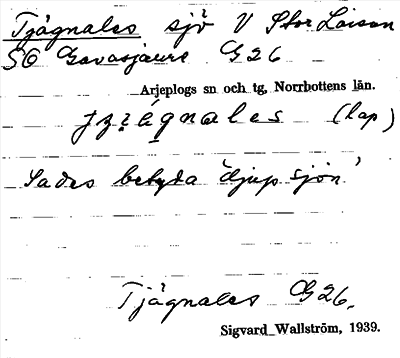 Tjågnales sjö V Stor Laisan
SO Gavasjaure G 26
Arjeplogs sn och tg, Norrbottens län.
(lap)
Sades betyda 'djup sjön'
Tjågnales G 26.
Sigvard Wallström, 1939.